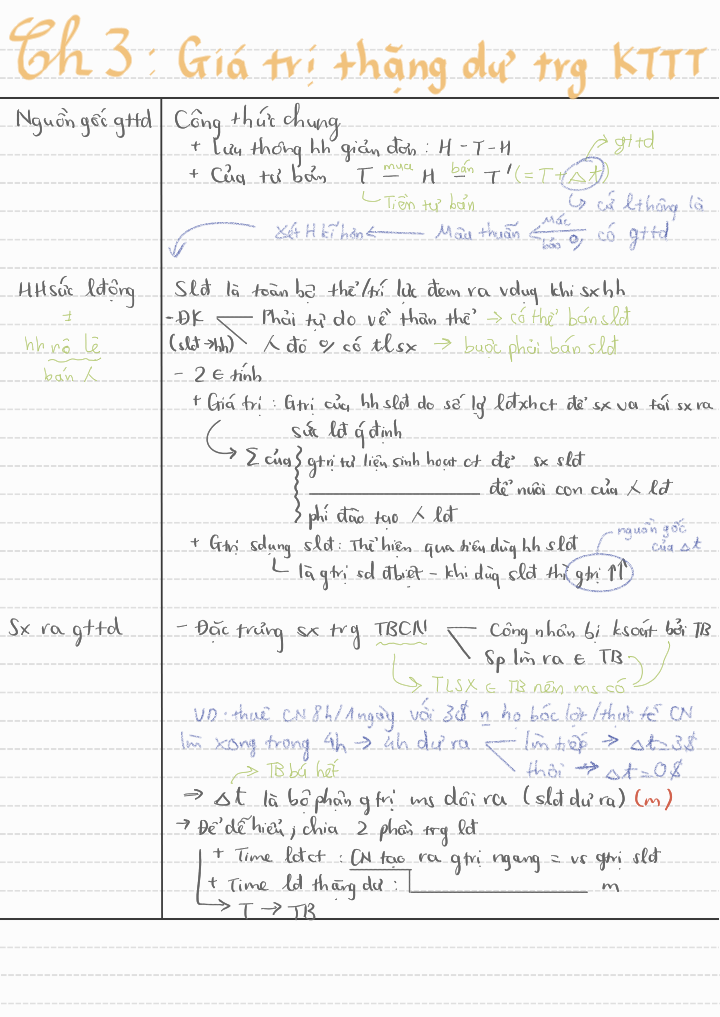 Ch 3 : Giá trị thặng dư trg KTTT
Nguồn gốc gttd
Công thức chung
+ Lưu thông hh giản đơn : H - T - H
gttd
+ Của tư bản T mua H bán T' (= T + Δt)
Tiền tư bản
cứ lthông là
Xét H kĩ hơn Mâu thuẫn Mác bảo có gttd
HH sức lđộng
Slđ là toàn bộ thể/trí lực đem ra vdụg khi sx hh
≠
- ĐK Phải tự do về thân thể → có thể bán slđ
hh nô lệ
(slđ → hh) đó có tlsx → buộc phải bán slđ
bán
- 2 ∈ tính
+ Giá trị : Gtrị của hh slđ do số lg lđxhct để sx va tái sx ra
sức lđ qđịnh
Σ của gtrị tư liệu sinh hoạt ct để sx slđ
để nuôi con của lđ
phí đào tạo lđ
+ Gtrị sdụng slđ : Thể hiện qua tiêu dùg hh slđ
nguồn gốc
của Δt
là gtrị sd đbiệt - khi dùg slđ thì gtrị ↑↑
Sx ra gttd
- Đặc trưng sx trg TBCN Công nhân bị ksoát bởi TB
Sp làm ra ∈ TB
TLSX ∈ TB nên ms có
VD : thuê CN 8h/1 ngày với 3$ họ bóc lột/thực tế CN
làm xong trong 4h → 4h dư ra làm tiếp → Δt = 3$
TB bú hết
thôi → Δt = 0$
→ Δt là bộ phận gtrị ms dôi ra (slđ dư ra) (m)
→ Để dễ hiểu, chia 2 phần trg lđ
+ Time lđct : CN tạo ra gtrị ngang = vs gtrị slđ
+ Time lđ thặng dư : m
T → TB